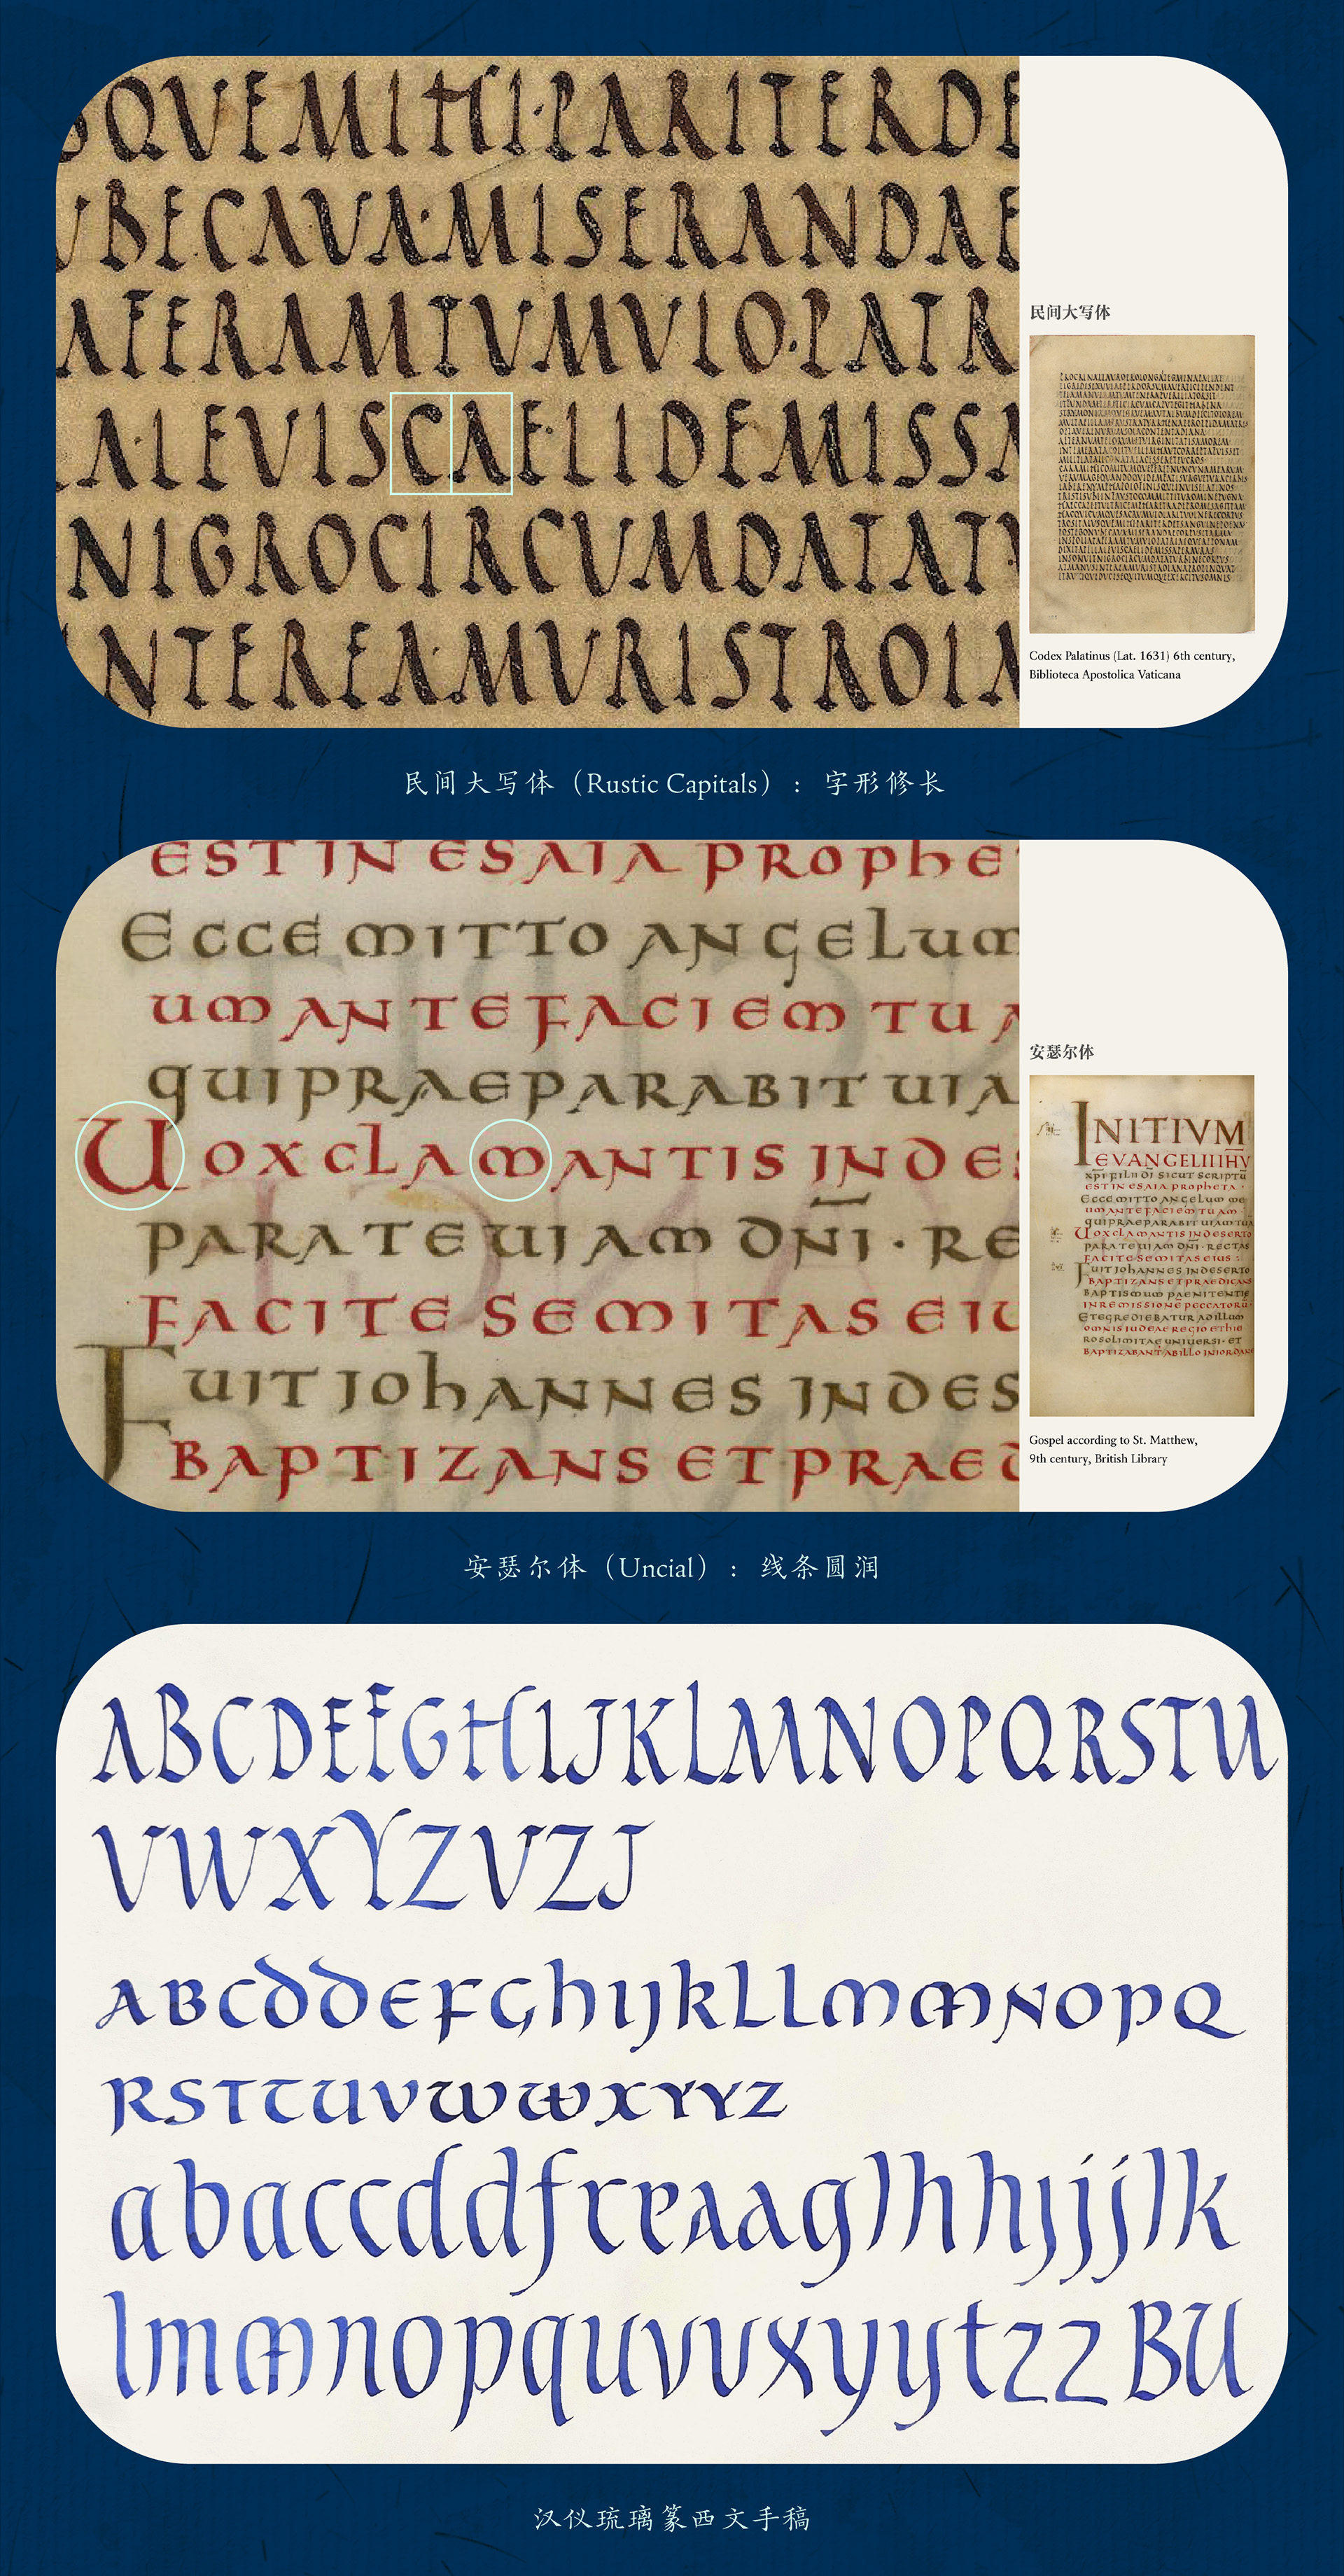 QVEMIHI·PARITERDE
VBECAVA·MISERANDAE
AFERAMTVMVLO·PATR
A·LEVISCAE·LIDEMISSA
NIGROCIRCVMDATAT
NTEREA·MVRISTROIA
民间大写体
Codex Palatinus (Lat. 1631) 6th century,
Biblioteca Apostolica Vaticana
民间大写体（Rustic Capitals）：字形修长
EST IN ESAIA PROPhE
ECCE MITTO ANGELum
UM ANTE FACIEM TUA
quiPRAEPARABIT UIA
UOX CLAMANTIS IN DES
PARATE UIAM DNI · RE
FACITE SEMITAS EIU
FUIT IOhANNES IN DES
BAPTIZANS ET PRAED
安瑟尔体
INITIVM
EVANGELIIIHV
XPI FILII DI SICUT SCRIPTU
EST IN ESAIA PROPHETA ·
ECCE MITTO ANGELUM ME
UM ANTE FACIEM TUAM
QUI PRAEPARABIT UIAM TUA
UOX CLAMANTIS IN DESERTO
PARATE UIAM DNI · RECTAS
FACITE SEMITAS EIUS :
FUIT IOHANNES IN DESERTO
BAPTIZANS ET PRAEDICANS
BAPTISMUM PAENITENTIE
IN REMISSIONE PECCATORU
ET EGREDIEBATUR AD ILLUM
OMNIS IUDEAE REGIO ET HIE
ROSOLIMITAE UNIUERSI · ET
BAPTIZABANT AB ILLO IN IORDANE
Gospel according to St. Matthew,
9th century, British Library
安瑟尔体（Uncial）：线条圆润
ABCDEFGHIJKLMNOPQRSTU
VWXYZVZJ
ABCddEFGhIJkLLmmNOPQ
RSTTUVWWXYYZ
abaccddfreaaglhhjjjlk
lmmnopquvvxyytzzBU
汉仪琉璃篆西文手稿